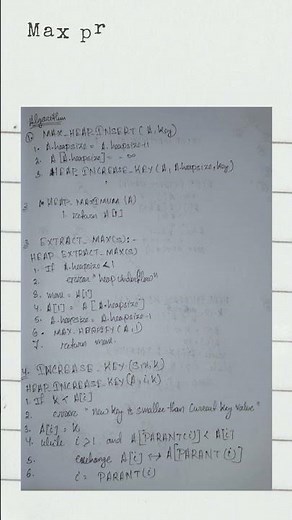 Max pr
Algorithm
① MAX_HEAP_INSERT (A, key)
1. A.heapsize = A.heapsize+1
2. A [A.heapsize] = - ∞
3. HEAP_INCREASE_KEY (A, A.heapsize, key)
2 HEAP_MAXIMUM (A)
1. return A[1]
3 EXTRACT_MAX(S):-
HEAP_EXTRACT_MAX(S)
1. If A.heapsize < 1
2. error "heap underflow"
3. max = A[1]
4. A[1] = A [A.heapsize]
5. A.heapsize = A.heapsize-1
6. MAX_HEAPIFY (A, 1)
7. return max.
4. INCREASE_KEY (S, x, k)
HEAP_INCREASE_KEY (A, i, k)
1. If k < A[i]
2. error "new key is smaller than current key value"
3. A[i] = k
4. while i > 1 and A [PARANT(i)] < A[i]
5. exchange A[i] ↔ A[PARANT (i)]
6. i = PARANT(i)